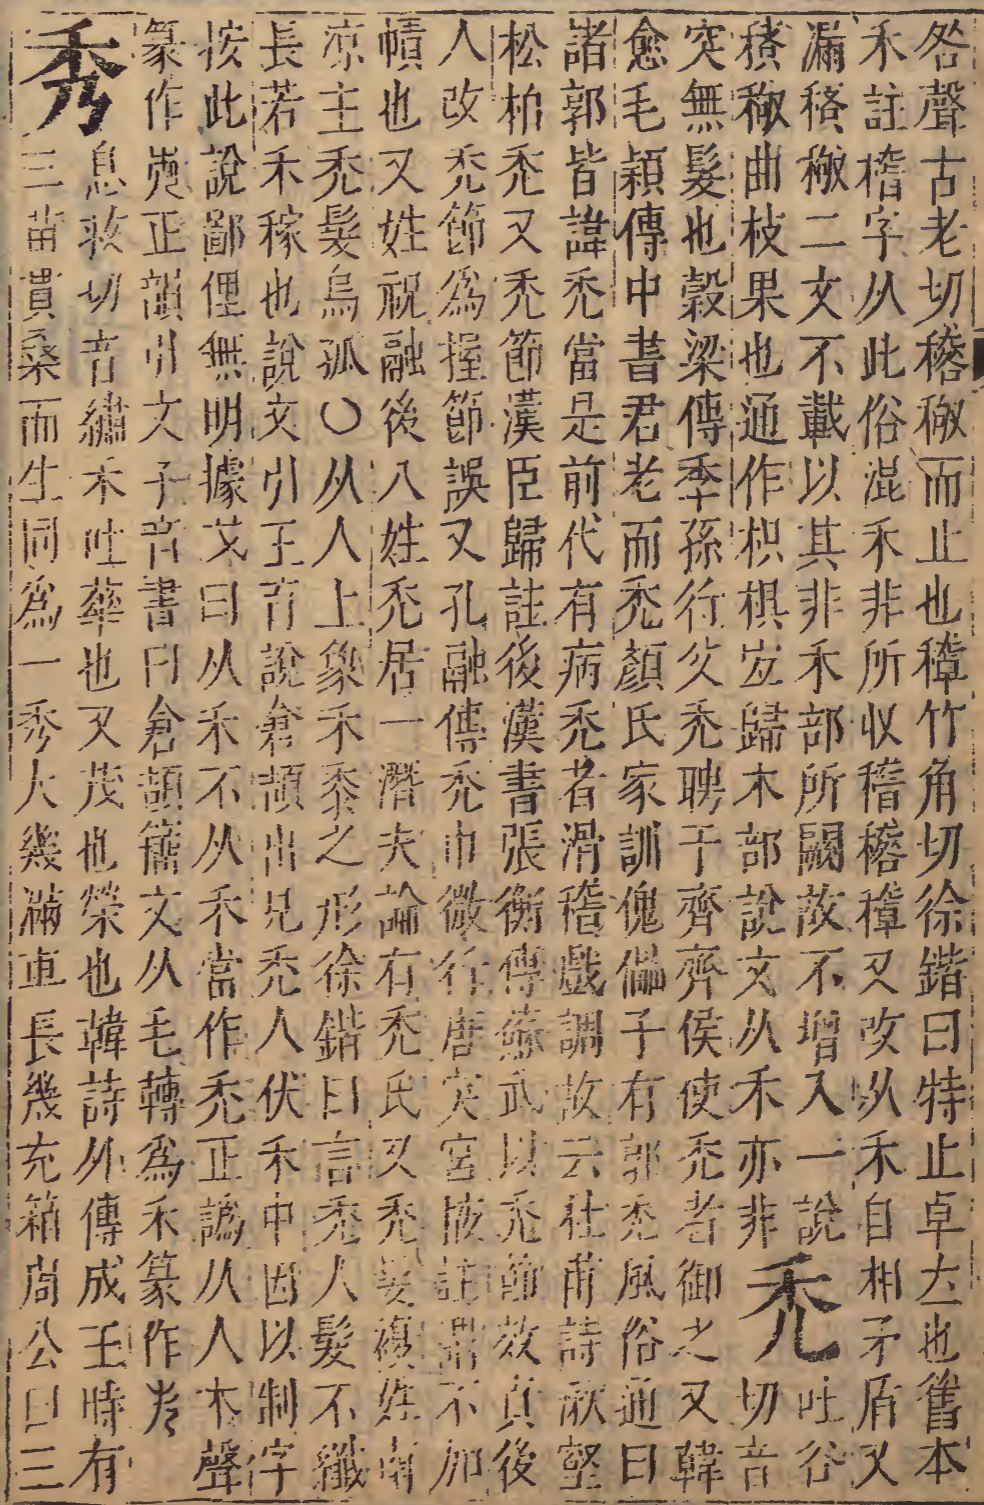 咎聲古老切𥡴𥠻而止也䅵竹角切徐鍇曰特止卓立也舊本
禾註稽字从此俗混禾非所收稽𥡴䅵又改从禾自相矛盾又
漏䅥𥠻二文不載以其非禾部所闕故不增入一說
𥢧𥠻曲枝果也通作枳椇宐歸木部說文从禾亦非禿吐谷切音
突無髮也穀梁傳季孫行父禿聘于齊齊侯使禿者御之又韓
愈毛穎傳中書君老而禿顏氏家訓傀儡子有郭禿風俗通曰
諸郭皆諱禿當是前代有病禿者滑稽戲調故云杜甫詩漱壑
松柏禿又禿節漢臣歸註後漢書張衡傳蘇武以禿節效貞後
人改禿節爲握節誤又孔融傳禿巾微行唐突宮掖註謂不加
幘也又姓祝融後八姓禿居一潛夫論有禿氏又禿髮複姓南
涼主禿髮烏孤○从人上象禾黍之形徐鍇曰言禿人髮不纖
長若禾稼也說文引王育說倉頡出見禿人伏禾中因以制字
按此說鄙俚無明據戈曰从禾不从禾當作禿正譌从人木聲
篆作𠒋正韻引文子音書曰倉頡籀文从毛轉爲禾篆作𠑷
秀息救切音繡禾吐華也又茂也榮也韓詩外傳成王時有
三苗貫桑而生同爲一秀大幾滿車長幾充箱周公曰三